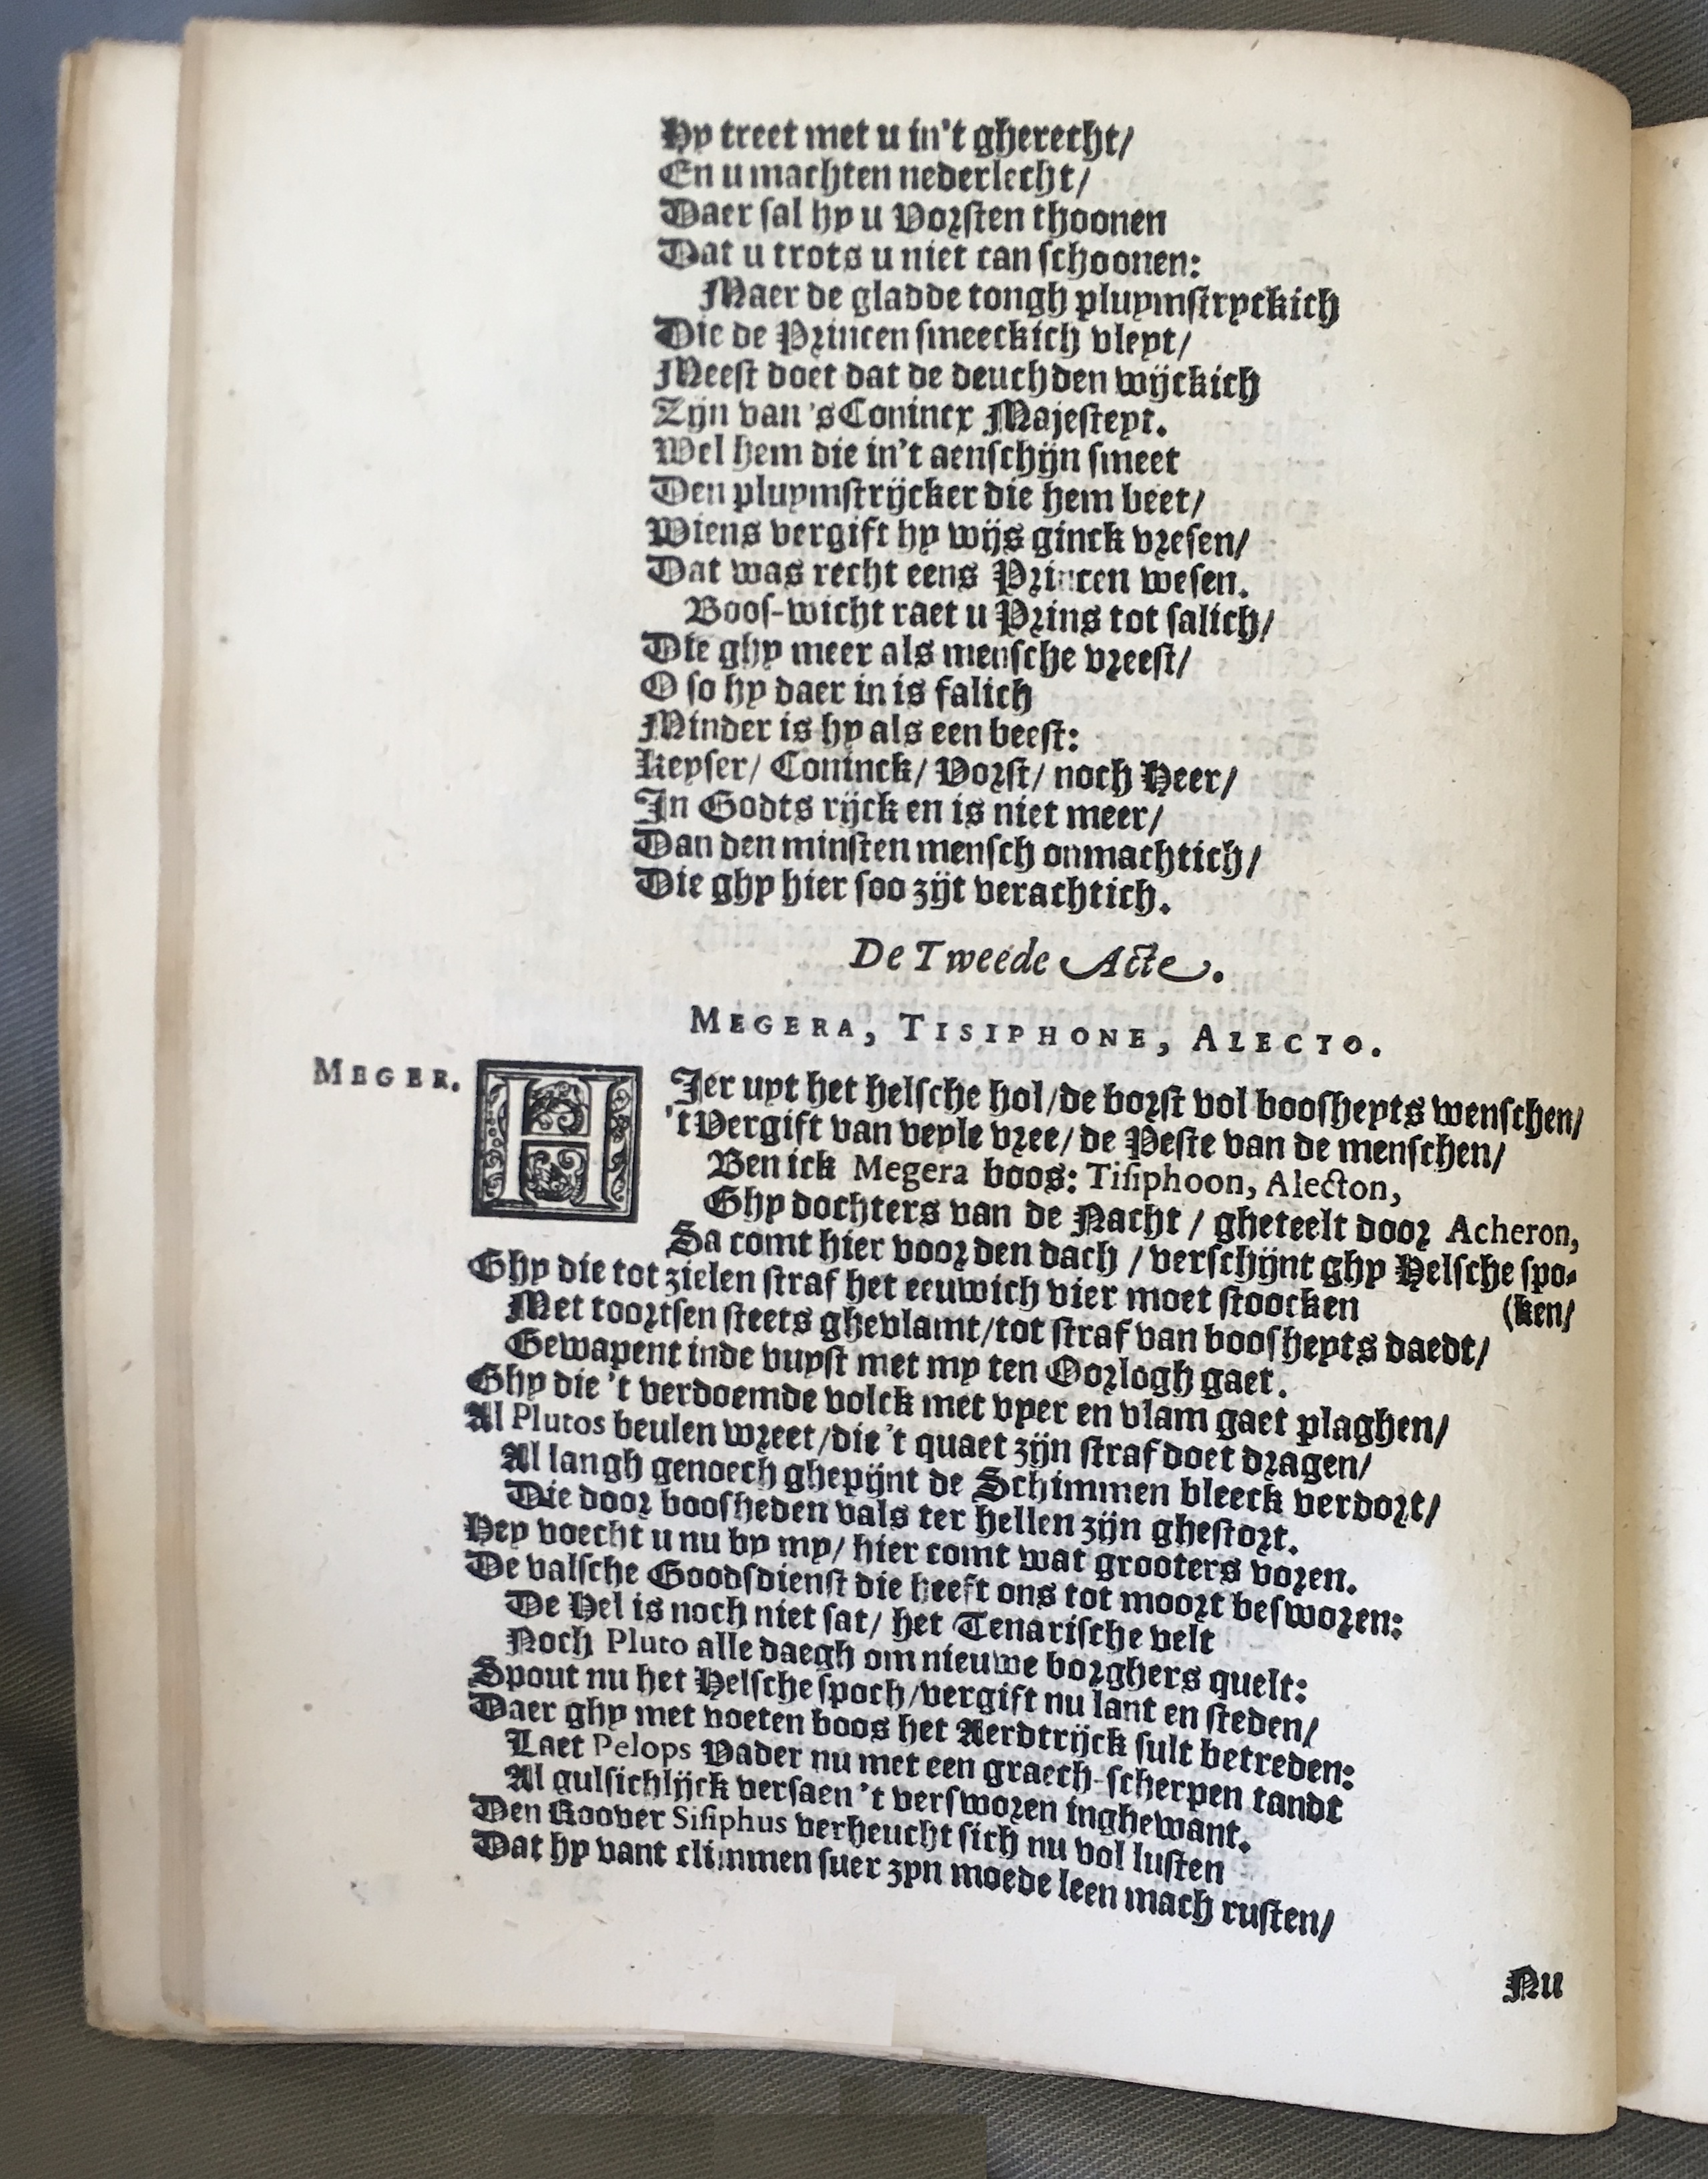 Hy treet met u in't gherecht/
En u machten nederlecht/
Daer sal hy u Vorsten thoonen
Dat u trots u niet can schoonen:
Maer de gladde tongh pluymstryckich
Die de Princen smeeckich vleyt/
Meest doet dat de deuchden wijckich
Zijn van 'sConincx Majesteyt.
Wel hem die in't aenschijn smeet
Den pluymstrijcker die hem beet/
Wiens vergift hy wijs ginck vresen/
Dat was recht eens Princen wesen.
Boos-wicht raet u Prins tot salich/
Die ghy meer als mensche vreest/
O so hy daer in is falich
Minder is hy als een beest:
Keyser/ Coninck/ Vorst/ noch Heer/
In Godts rijck en is niet meer/
Dan den minsten mensch onmachtich/
Die ghy hier soo zijt verachtich.
De Tweede Acte.
MEGERA, TISIPHONE, ALECTO.
MEGER. HIer uyt het helsche hol/de borst vol boosheyts wenschen/
't Vergift van veyle vree/ de Peste van de menschen/
Ben ick Megera boos: Tisiphoon, Alecton,
Ghy dochters van de Nacht / gheteelt door Acheron,
Sa comt hier voor den dach / verschijnt ghy Helsche spo-
Ghy die tot zielen straf het eeuwich vier moet stoocken (ken/
Met toortsen steets ghevlamt/tot straf van boosheyts daedt/
Gewapent inde vuyst met my ten Oorlogh gaet.
Ghy die 't verdoemde volck met vyer en vlam gaet plaghen/
Al Plutos beulen wreet/die 't quaet zijn straf doet dragen/
Al langh genoech ghepijnt de Schimmen bleeck verdort/
Die door boosheden vals ter hellen zijn ghestort.
Hey voecht u nu by my/ hier comt wat grooters voren.
De valsche Goodsdienst die heeft ons tot moort besworen:
De Hel is noch niet sat/ het Tenarische velt
Noch Pluto alle daegh om nieuwe borghers quelt:
Spout nu het Helsche spoch/vergift nu lant en steden/
Daer ghy met voeten boos het Aerdtrijck sult betreden:
Laet Pelops Vader nu met een graech-scherpen tandt
Al gulsichlijck versaen 't versworen inghewant.
Den Roover Sisiphus verheucht sich nu vol lusten
Dat hy vant climmen suer zyn moede leen mach rusten/
Nu